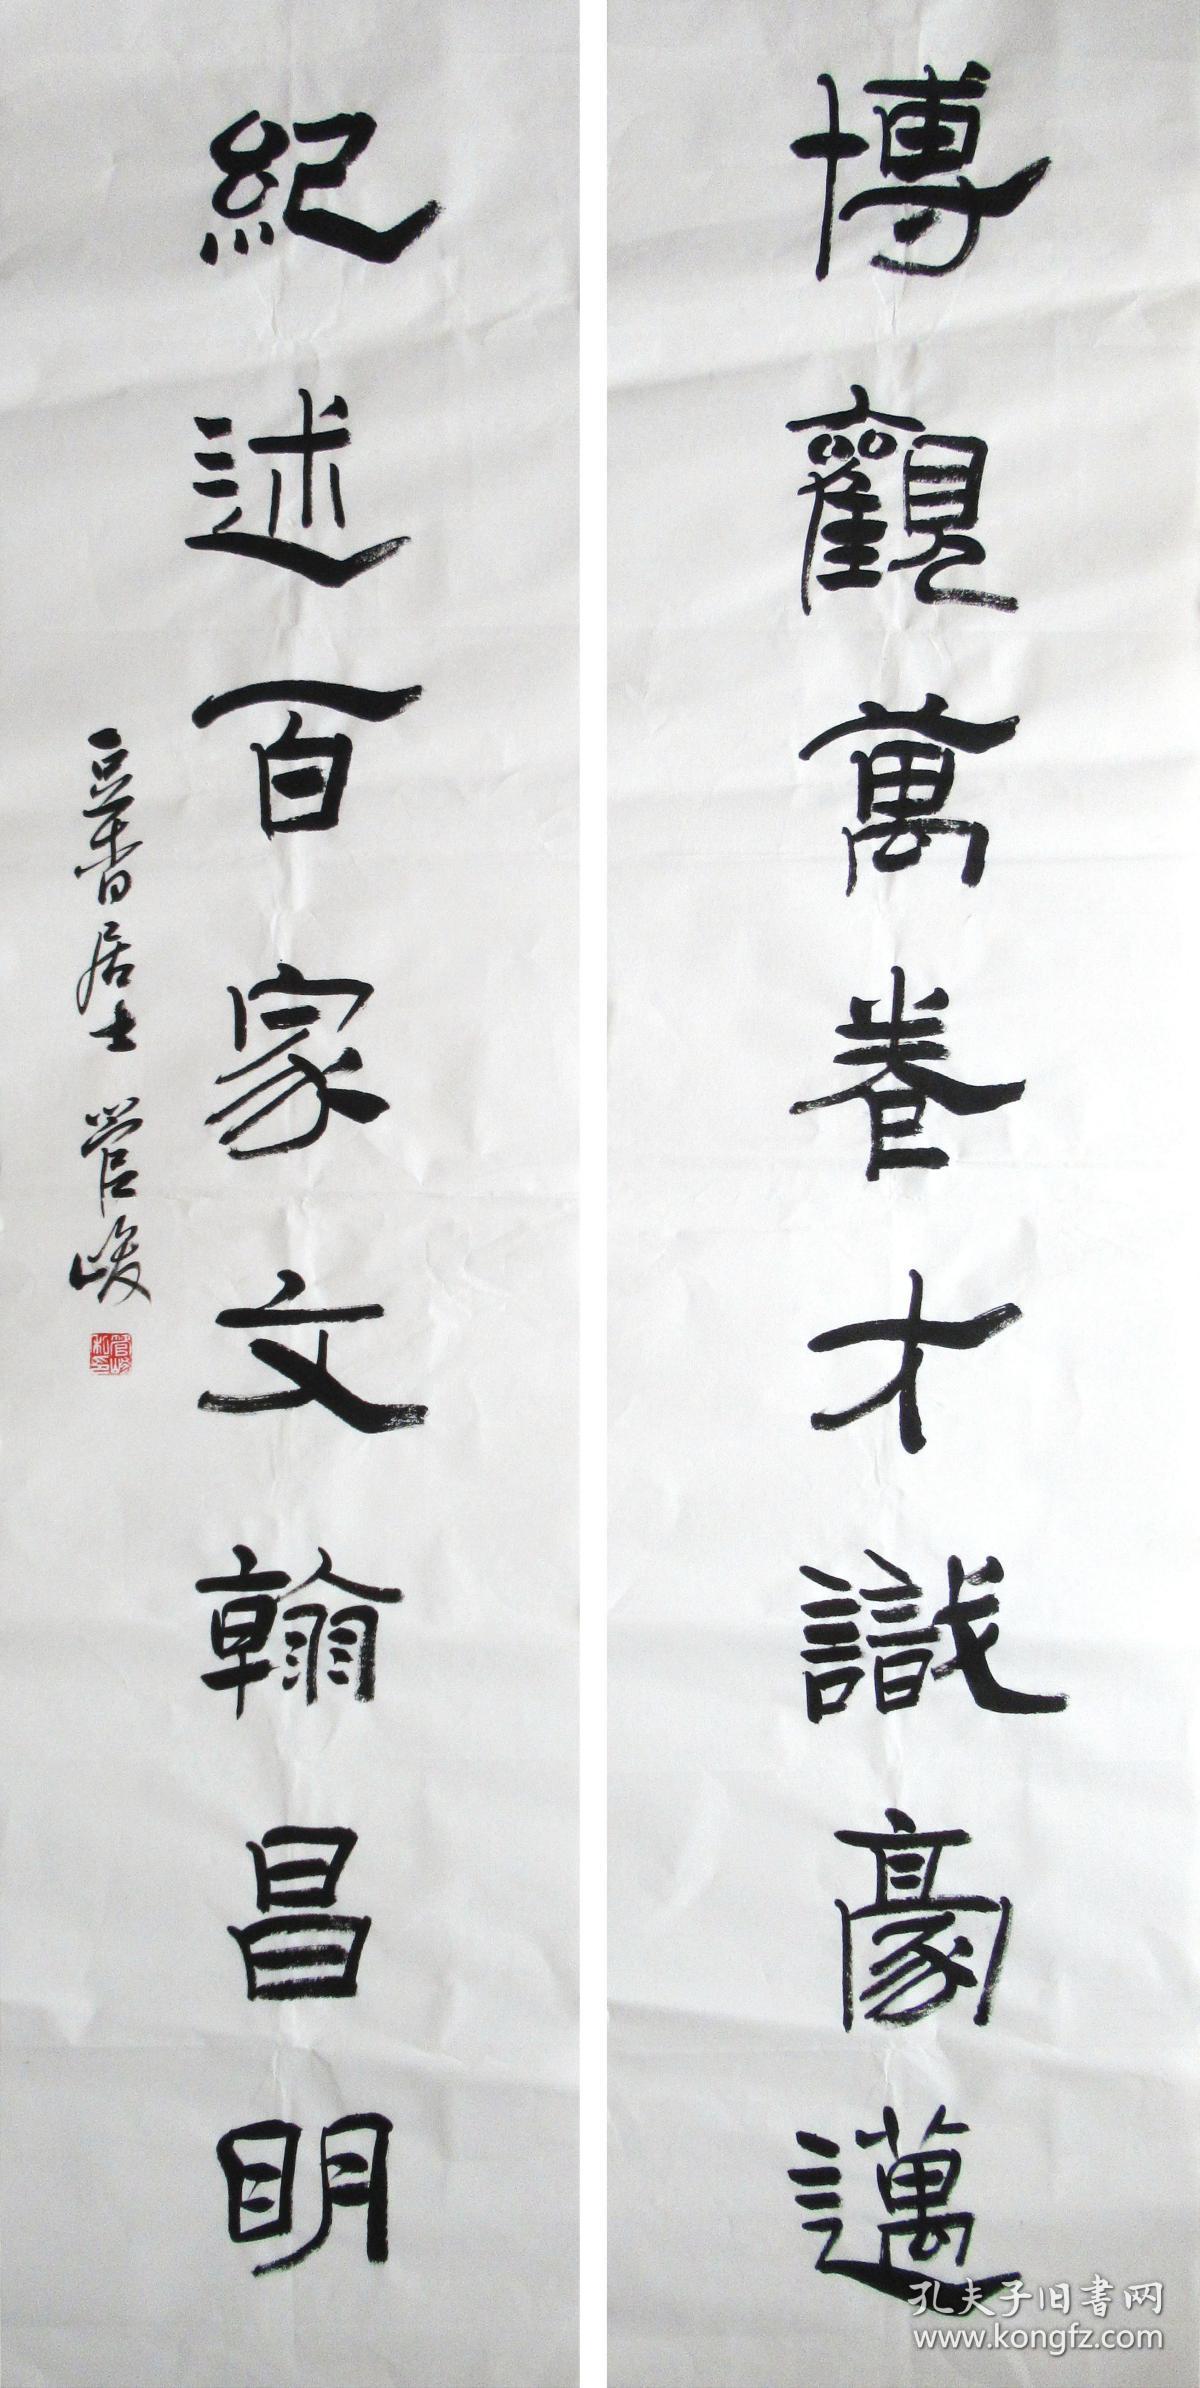 博觀萬卷才識豪邁
紀述百家文翰昌明
豆香居士 管峻
管峻私印
孔夫子旧书网
www.kongfz.com